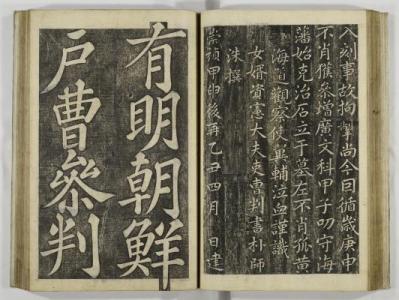 入刻事故拘掣尚今因循歲庚申
不肖獲參增廣文科甲子叨守海
藩始克治石立于墓左不肖孤黃
海道觀察使輔泣血謹識
女婿資憲大夫吏曹判書朴師
洙撰
崇禎甲申後再乙丑四月 日建
有明朝鮮
戶曹參判